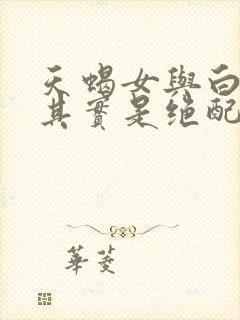 天蝎女與白
其實是絕配
華菱